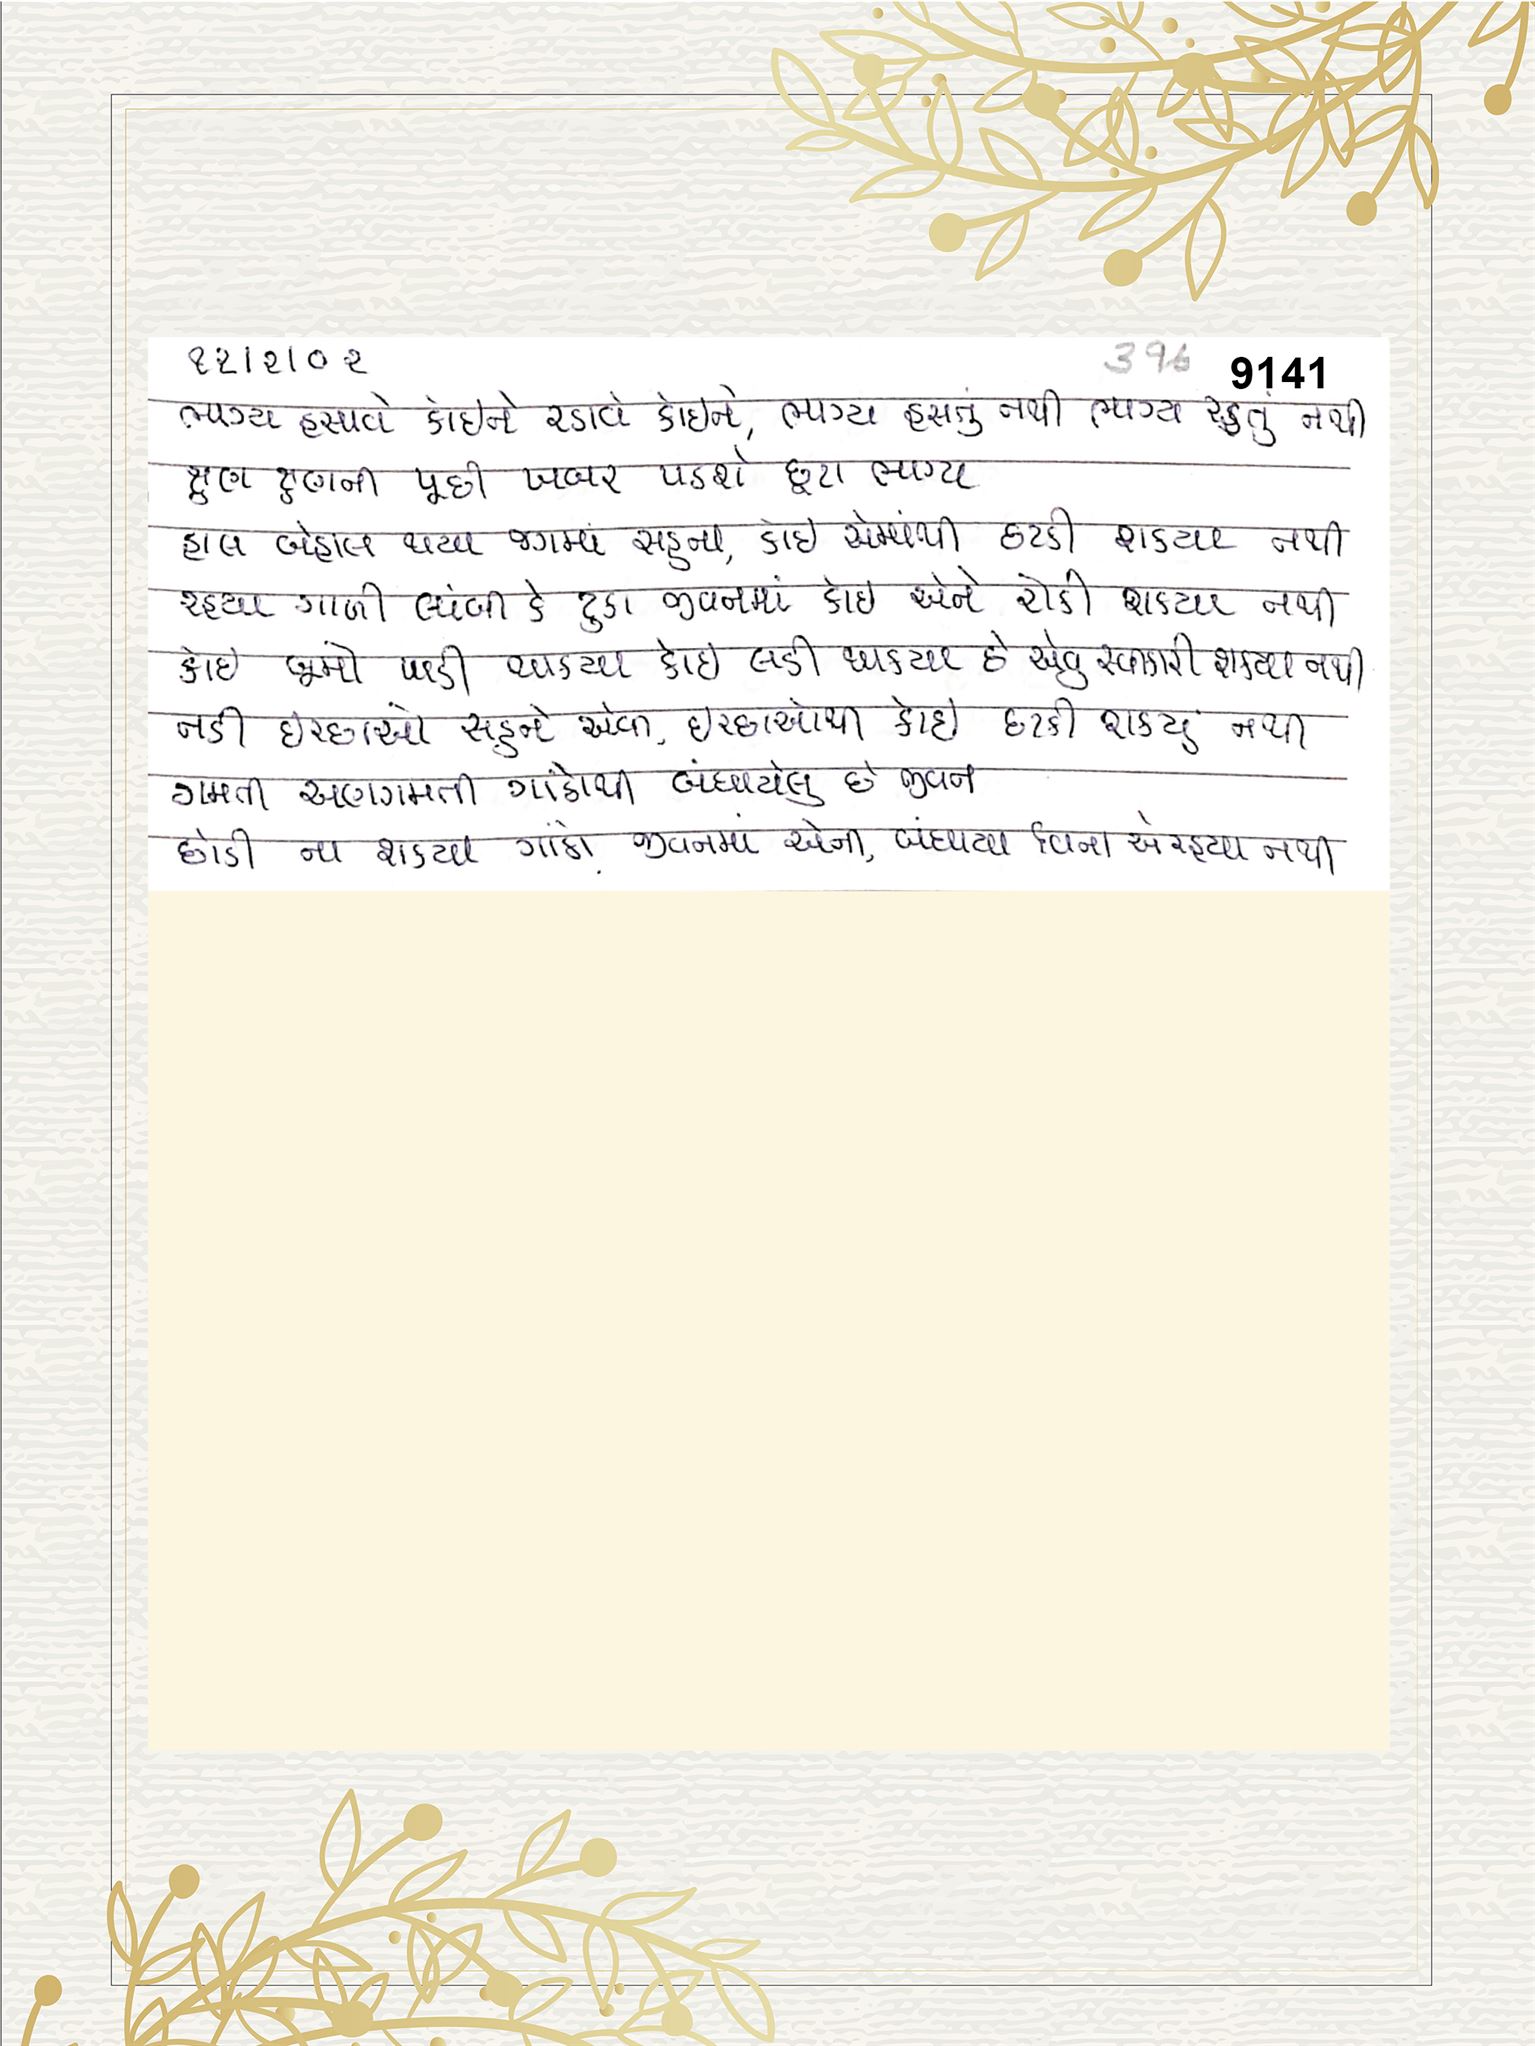 ૧૨/૨/૦૨ 396 9141
ભાગ્ય હસાવે કોઇને રડાવે કોઇને, ભાગ્ય હસતું નથી ભાગ્ય રડતું નથી
ક્ષણ ક્ષણની પૂછી ખબર પડશે છૂટા ભાગ્ય
હાલ બેહાલ થયા જગમાં સહુના, કોઇ એમાંથી છટકી શકયા નથી
રહ્યા ગાળી લાંબી કે ટુકા જીવનમાં કોઇ એને રોકી શકયા નથી
કોઇ બૂમો પાડી થાકયા કોઇ લડી થાકયા છે એવુ સ્વીકારી શકયા નથી
નડી ઇચ્છાઓ સહુને એવી, ઇચ્છાઓથી કોઇ છટકી શકયું નથી
ગમતી અણગમતી ગાંઠોથી બંધાયેલુ છે જીવન
છોડી ના શકયા ગાંઠો જીવનમાં એની, બંધાયા વિના એ રહ્યા નથી